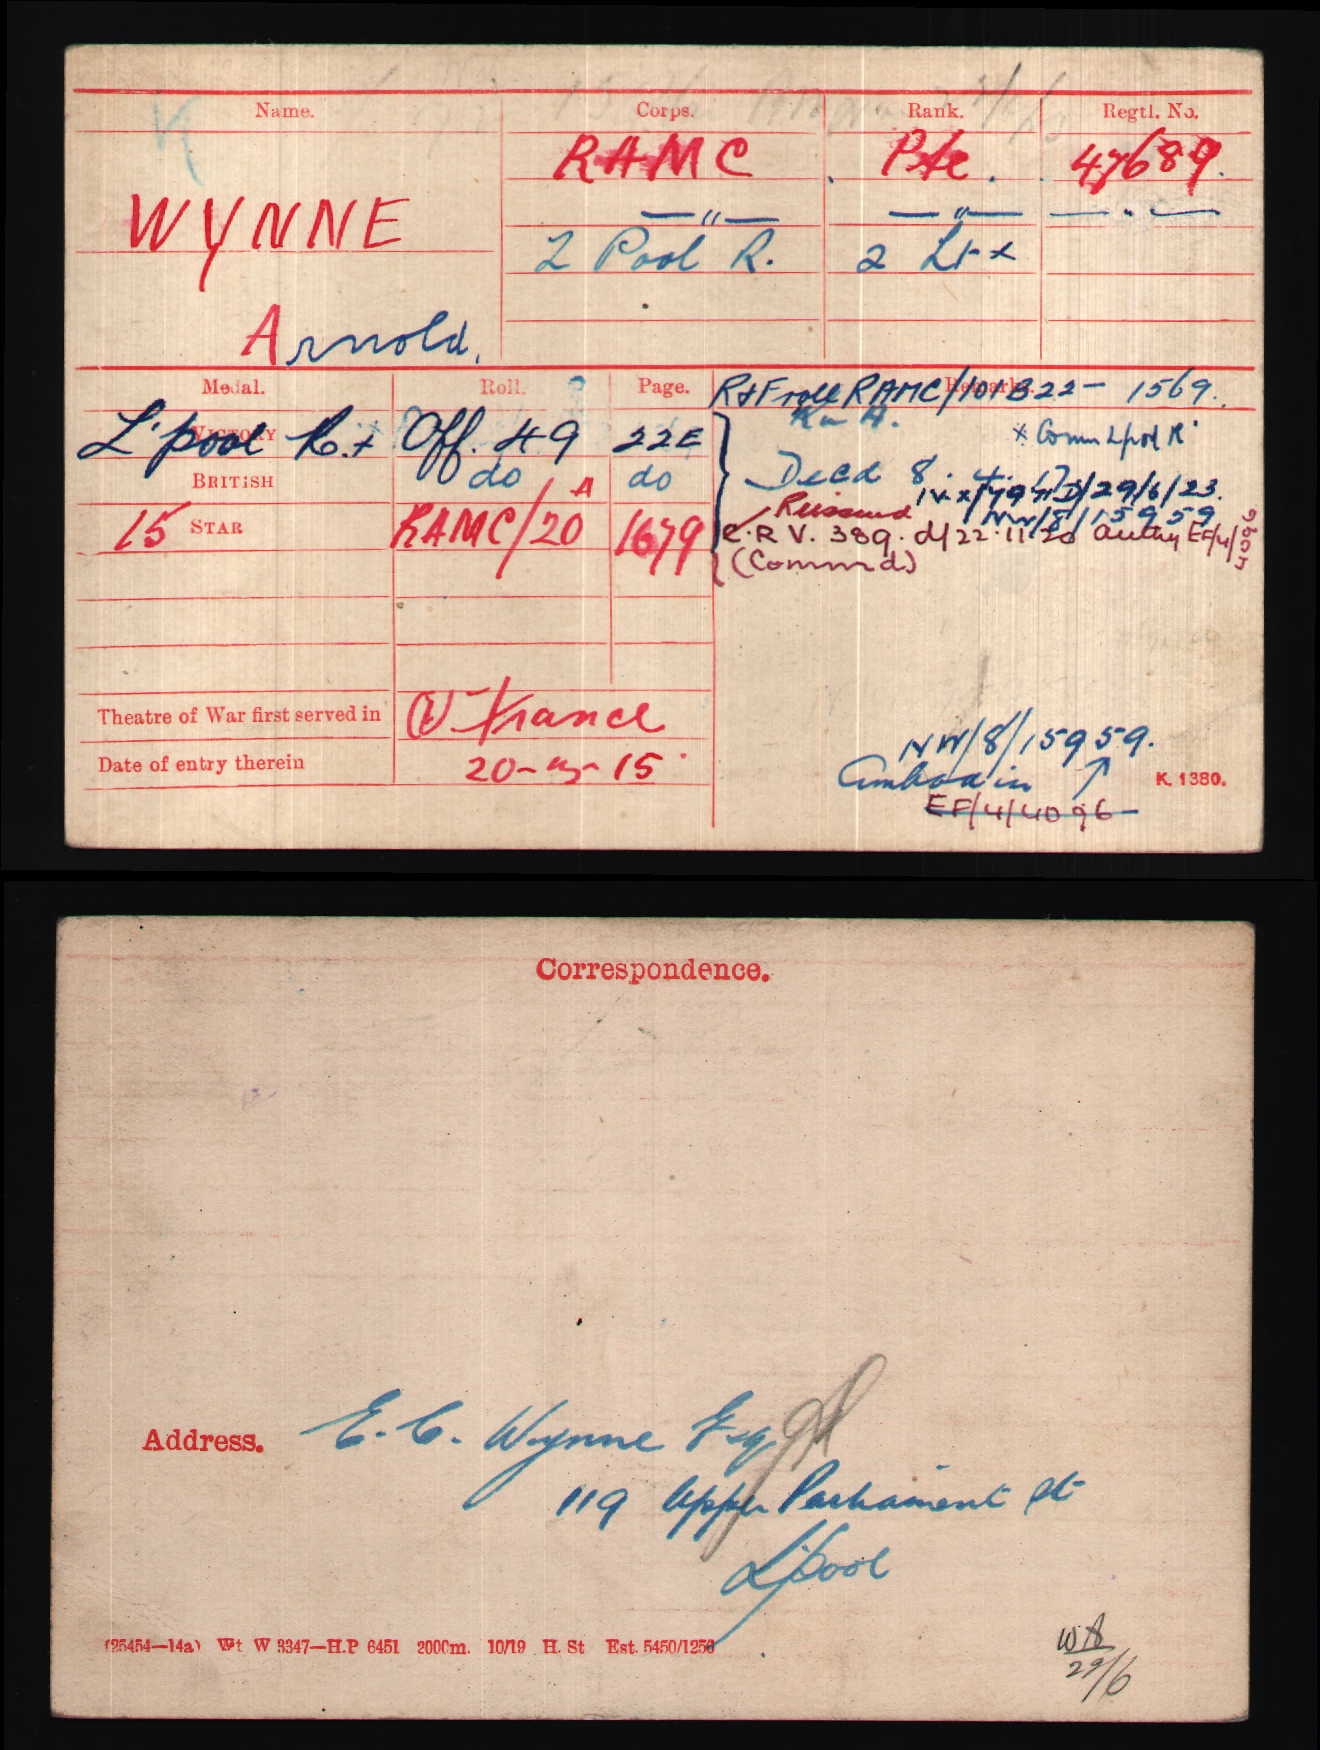 Name. Corps. Rank. Regtl. No.
RAMC Pte. 47689.
WYNNE —"— —"— —"—
L'Pool R. 2 Lt x
Arnold.
Medal. Roll. Page. Remarks.
R & F roll RAMC/101B22 - 1569.
VICTORY L'pool R.x Off. 49 22E
K in A. x Comm Lpool R
BRITISH do do
Decd 8. 4. 17
/29/6/23.
Reissued NW/8/15959
15 STAR RAMC/20 A 1679
C.R V. 389. d/22.11.20 Authy EF/4/4096
(Commd)
Theatre of War first served in (1) France
Date of entry therein 20-  -15
NW/8/15959.
K. 1380.
EF/4/4096
Correspondence.
Address. E. C. Wynne Esq
119 Upper Parliament St
L'pool
(25454—14a) Wt W 3347—H.P 6451 2000m. 10/19 H. St Est. 5450/1250
29/6